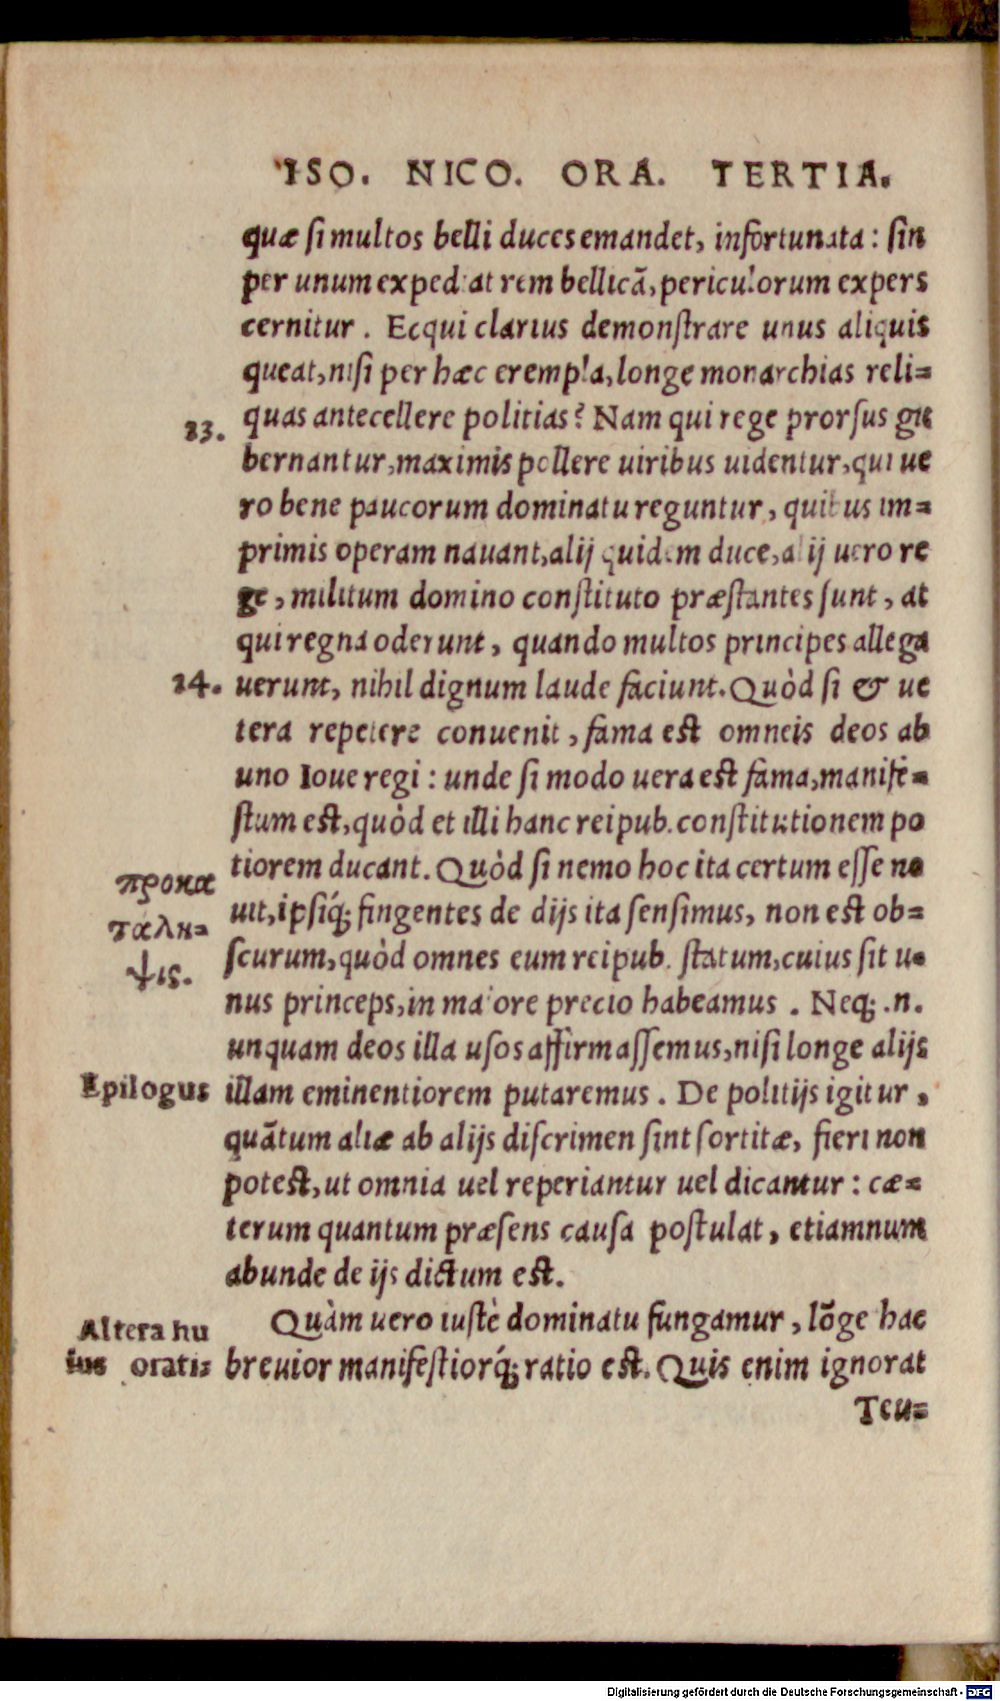 ISO. NICO. ORA. TERTIA.
quæ si multos belli duces emandet, infortunata: sin
per unum expediat rem bellicã, periculorum expers
cernitur. Ecqui clarius demonstrare unus aliquis
queat, nisi per hæc exempla, longe monarchias reli=
quas antecellere politias? Nam qui rege prorsus gu
23.
bernantur, maximis pollere uiribus uidentur, qui ue
ro bene paucorum dominatu reguntur, quibus im=
primis operam nauant, alij quidem duce, alij uero re
ge, militum domino constituto præstantes sunt, at
qui regna oderunt, quando multos principes allega
24.
uerunt, nihil dignum laude faciunt. Quòd si & ue
tera repetere conuenit, fama est omneis deos ab
uno Ioue regi: unde si modo uera est fama, manife=
stum est, quòd et illi hanc reipub. constitutionem po
tiorem ducant. Quòd si nemo hoc ita certum esse no
προκα
uit, ipsiq́; fingentes de dijs ita sensimus, non est ob=
τάλη=
scurum, quòd omnes eum reipub. statum, cuius sit u=
ψις.
nus princeps, in maiore precio habeamus. Neq; .n.
unquam deos illa usos affirmassemus, nisi longe alijs
Epilogus
illam eminentiorem putaremus. De politijs igitur,
quãtum aliæ ab alijs discrimen sint sortitæ, fieri non
potest, ut omnia uel reperiantur uel dicantur: cæ=
terum quantum præsens causa postulat, etiamnum
abunde de ijs dictum est.
Quàm uero iustè dominatu fungamur, lõge hac
Altera hu
breuior manifestiorq́; ratio est. Quis enim ignorat
ius oratī=
Teu=
Digitalisierung gefördert durch die Deutsche Forschungsgemeinschaft - DFG